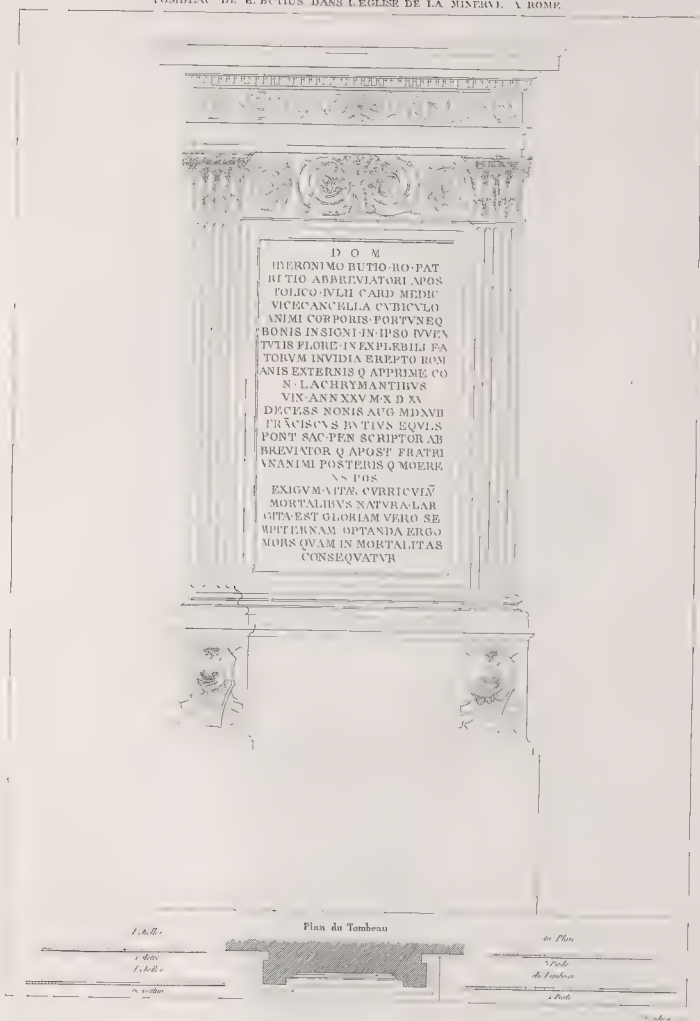 TOMBEAU DE H. BUTIUS DANS L'EGLISE DE LA MINERVE A ROME
D O M
HIERONIMO BUTIO·RO·PAT
RITIO ABBREVIATORI APOS
TOLICO·IVLII CARD MEDIC
VICECANCELLA CVBICVLO
ANIMI CORPORIS·FORTVNEQ
BONIS INSIGNI·IN·IPSO IVVEN
TVTIS FLORE·INEXPLEBILI FA
TORVM INVIDIA EREPTO ROM
ANIS EXTERNIS Q APPRIME CO
N·LACHRYMANTIBVS
VIX·ANN XXV M·X D XV
DECESS NONIS AUG MDXVII
FRÃCISCVS BVTIVS EQVES
PONT SAC·PEN SCRIPTOR AB
BREVIATOR Q APOST FRATRI
VNANIMI POSTERIS Q MOERE
NS POS
EXIGVM·VITÆ CVRRICVLṼ
MORTALIBVS NATVRA·LAR
GITA·EST GLORIAM VERO SE
MPITERNAM OPTANDA ERGO
MORS QVAM IN MORTALITAS
CONSEQVATVR
Plan du Tombeau
Echelle
du Plan
Echelle
du Tombeau